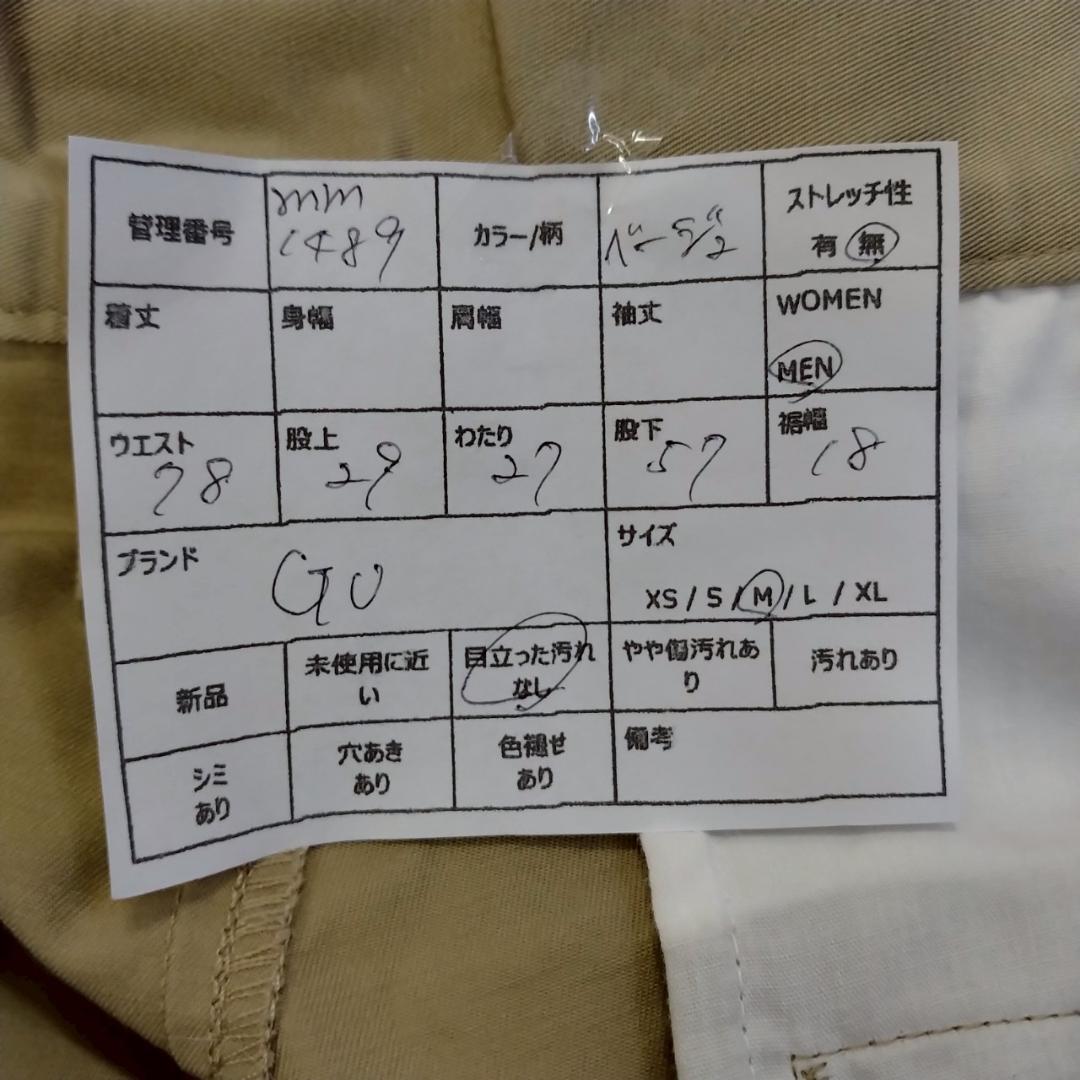 管理番号
mm
1489
カラー/柄
ベージュ
ストレッチ性
有 無
着丈
身幅
肩幅
袖丈
WOMEN
MEN
ウエスト
78
股上
29
わたり
27
股下
57
裾幅
18
ブランド
GU
サイズ
XS / S / M / L / XL
新品
未使用に近
い
目立った汚れ
なし
やや傷汚れあ
り
汚れあり
シミ
あり
穴あき
あり
色褪せ
あり
備考